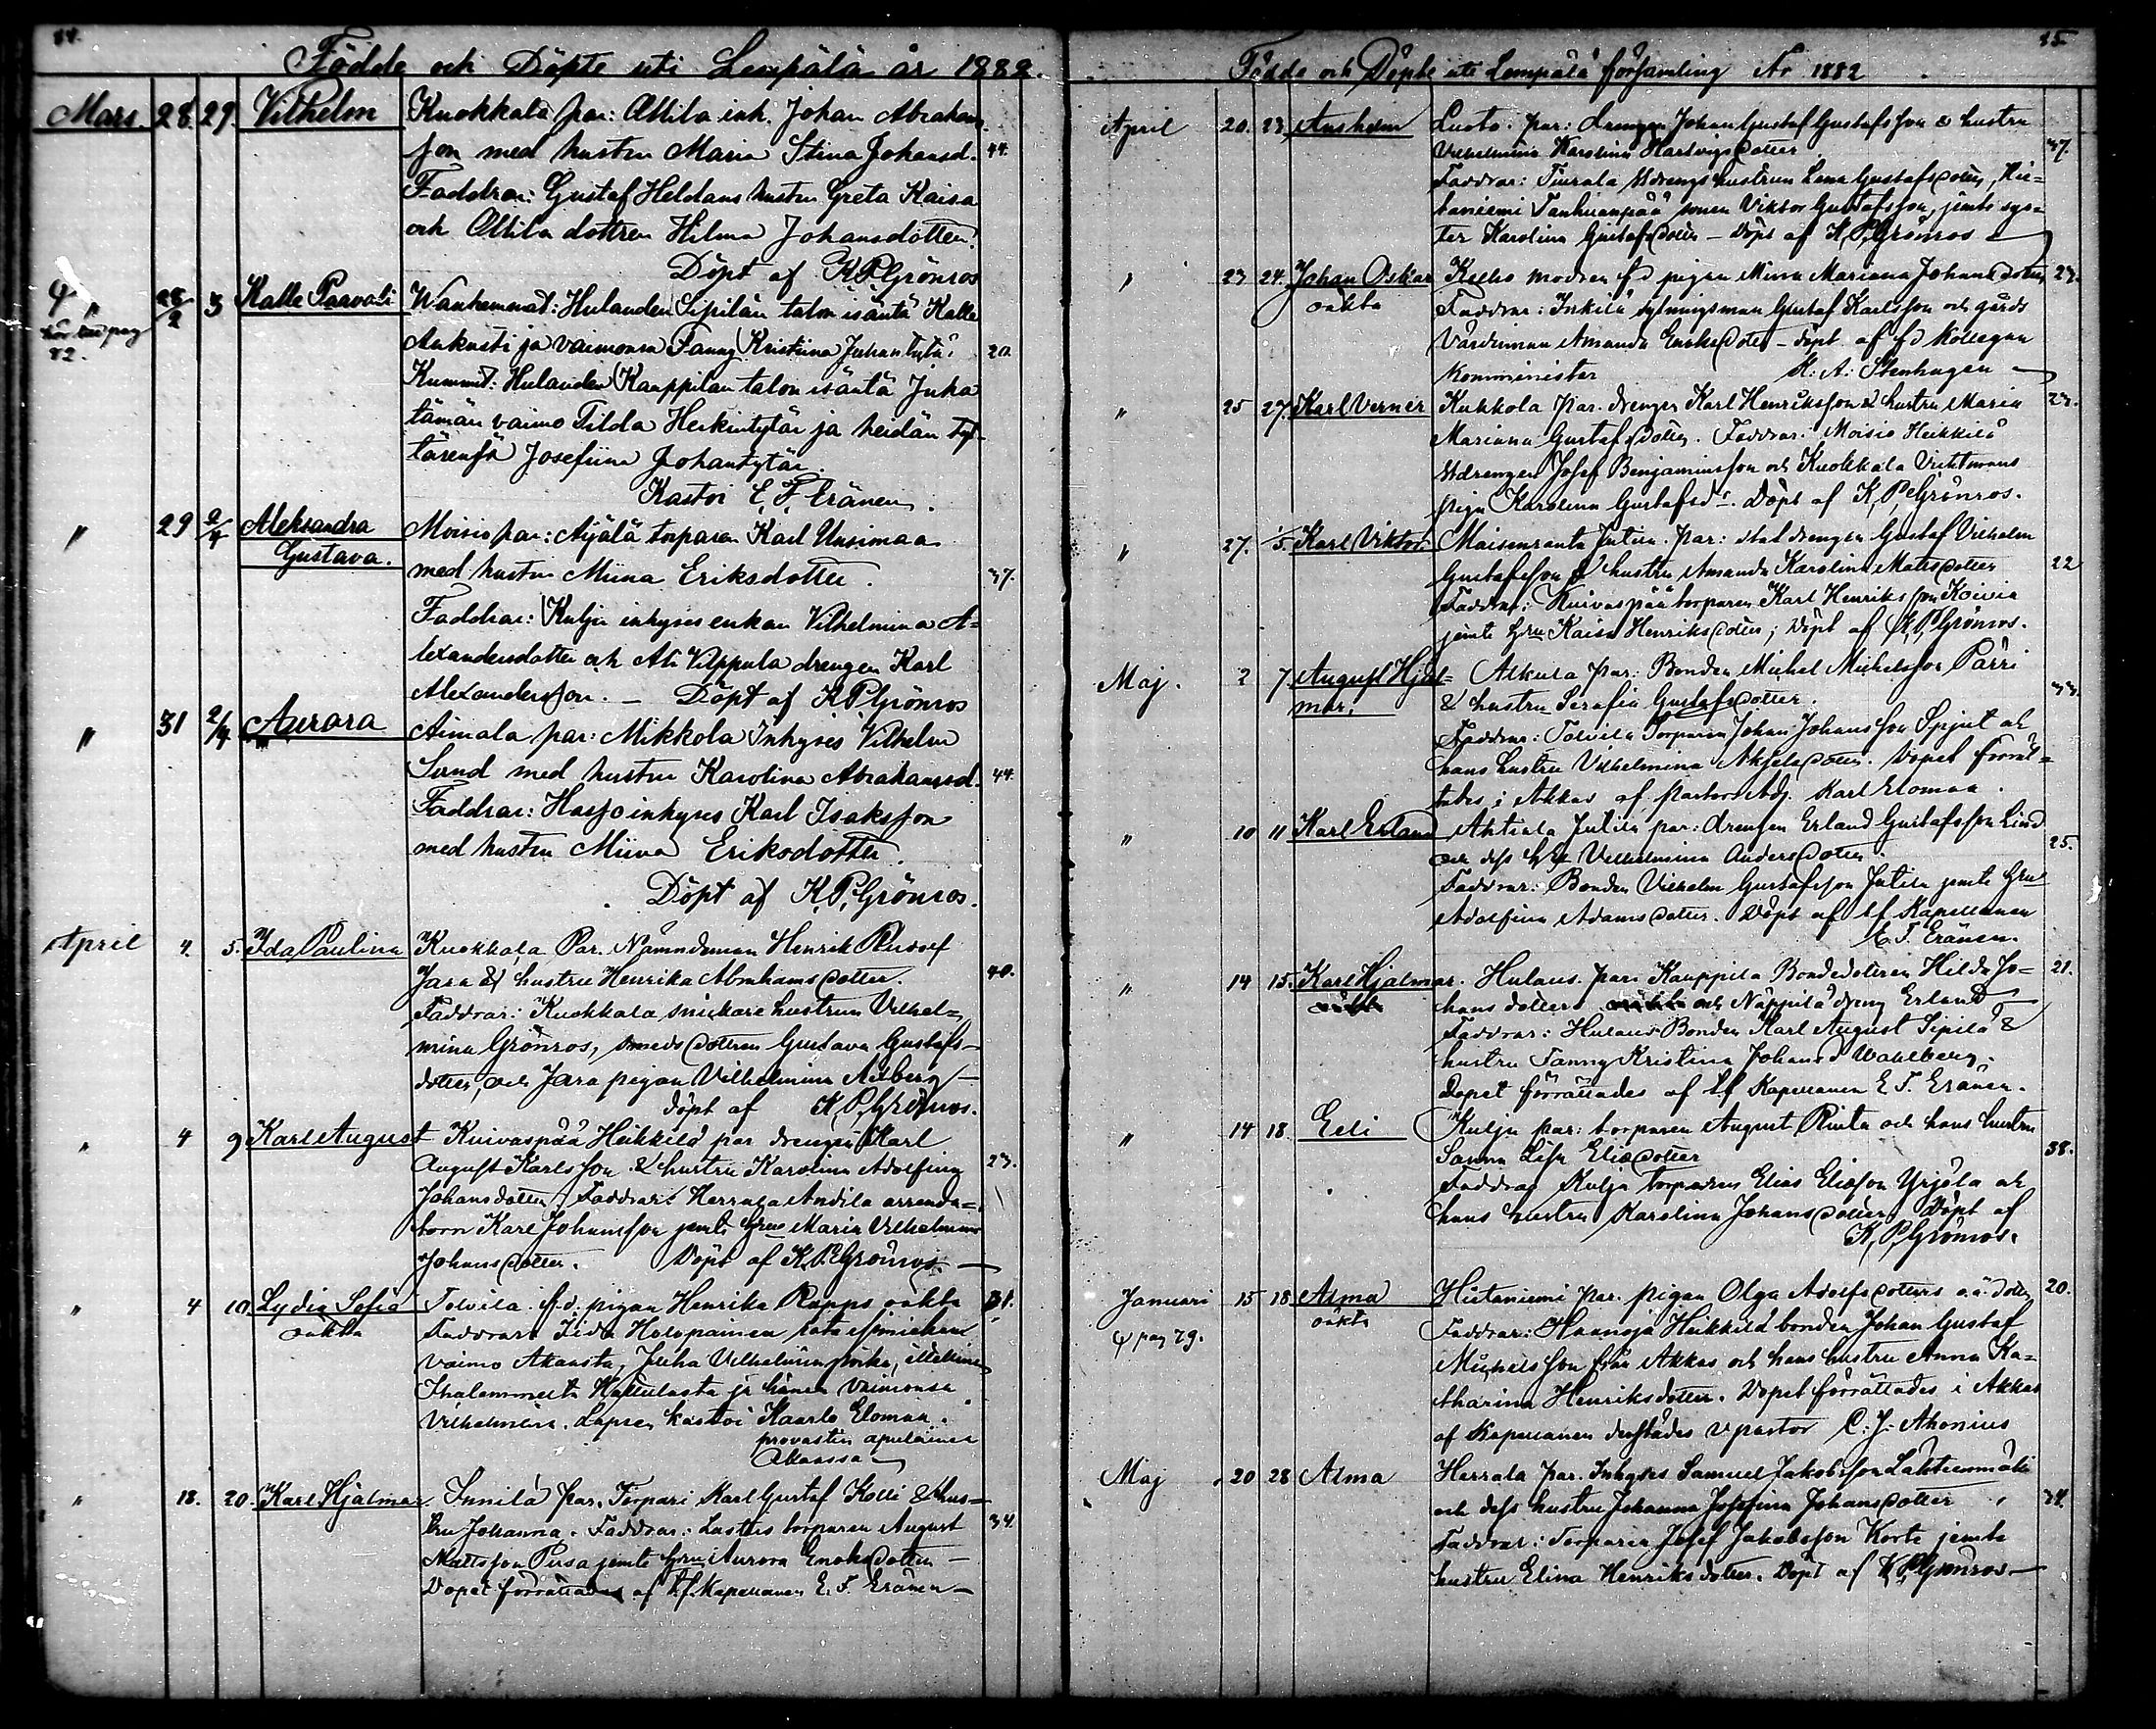 84.
Födde och Döpte uti Lempälä år 1882.
Mars 28. 29. Vilhelm Kuokkala par: Attila inh. Johan Abrahams
son med hustru Maria Stina Johansd. 44.
Faddrar: Gustaf Heldans hustru Greta Kaisa
och Attila dottren Hilma Johansdotter.
Döpt af K.P.Grönros
" 28/2 3 Kalle Paavali Wanhemmat: Hulauden Sipilän talon isäntä Kalle
hör till pag 82.
Aukusti ja vaimonsa Fanny Kristiina Juhantytär 20.
Kummit: Hulauden Kauppilan talon isäntä Juha
tämän vaimo Tilda Heikintytär ja heidän tyt-
tärensä Josefiina Johantytär.
Kastoi E. F. Eränen.
" 29 2/4 Aleksandra Gustava. Moisio par: Äijälä torparen Karl Uusimaa
med hustru Miina Eriksdotter. 37.
Faddrar: Kulju inhyses enkan Vilhelmina A-
lexandersdotter och Ali Vilppula drengen Karl
Alexandersson. – Döpt af K.P.Grönros
" 31 2/4 Aurora Aimala par: Mikkola Inhyses Vilhelm
Sund med hustru Karolina Abrahamsd. 44.
Faddrar: Harjo inhyses Karl Isaksson
med hustru Miina Eriksdotter.
Döpt af K.P.Grönros.
April 4. 5. Ida Paulina Kuokkala Par. Nämndeman Henrik Rudolf
Jara & hustru Henrika Abrahamsdotter. 40.
Faddrar: Kuokkala snickare hustrun Vilhel=
mina Grönros, smeds dottren Gustava Gustafs-
dotter, och Jara pigan Vilhelmina Adberg –
döpt af K.P.Grönros.
" 4 9 Karl August Kuivaspää Heikkilä par drengen Karl
August Karlsson & hustru Karolina Adolfina 23.
Johansdotter, Faddrar: Herrala Andila arrenda=
torn Karl Johansson jemte hru Maria Vilhelmina
Johansdotter. Döpt af K.P.Grönros. –
" 4 10. Lydia Sofia oäkta Tolvila f.d. pigan Henrika Rapps oäkta 31.
Faddrar: Iida Holopainen
vaimo Akaasta, Juha Vilhelmin poika, itsellinen
ja hänen vaimonsa
Vilhelmiina. Lapsen kastoi Kaarlo Elomaa.
provastin apulainen
Akaassa
" 18. 20. Karl Hjalmar. Innilä par. Torpari Karl Gustaf Kolli & hus-
tru Johanna. Faddrar: Lastus torparen August 34.
Mattsson Pusa jemte hru Aurora Enoksdotter –
Dopet förrättades af t.f. Kapellanen E. F. Eränen –
85
Födde och Döpte uti Lempälä församling År 1882.
April 20. 23. Ansholm Luoto. par: Drengen Johan Gustaf Gustafsson & hustru
Vilhelmina Karolina Hartvigsdotter 37.
Faddrar: Tiurala Mdrengs hustrun Lena Gustafsdotter, Hie-
taniemi Tanhuanpää sonen Viktor Gustafsson, jemte sys-
ter Karolina Gustafsdotter – Döpt af K.P.Grönros –
" 23 24. Johan Oskar oäkta modren f.d. pigan Miina Mariana Johansdotter 23.
Faddrar: Inkilä sytningsman Gustaf Karlsson och gårds
Värdinnan Amanda Enoksdotter – döpt af f.d. Kollegan
Komminister K. A. Stenhagen –
" 25 27. Karl Verner Kukkola par. drengen Karl Henriksson & hustru Maria 23.
Mariana Gustafsdotter. Faddrar: Moisio Heikkilä
Mdrengen Josef Benjaminsson och Kuokkala
pigan Karolina Gustafsdr. Döpt af K.P.Grönros.
" 27. 1/5. Karl Viktor. Maisenranta Jutila. par: stat drengen Gustaf Vilhelm
Gustafsson & hustru Amanda Karolina Matsdotter 22
Faddrar: Kuivaspää torparen Karl Henriksson Koivia
jemte hru Kaisa Henriksdotter; Döpt af K.P.Grönros.
Maj. 2 7 August Hjal=
mar. Alkula par: Bonden Mickel Mickelsson Pärri
& hustru Serafia Gustafsdotter. 33.
Faddrar: Tolvila Torparen Johan Johansson Spjut och
hans hustru Vilhelmina Akselsdotter. Dopet förrät-
tades i Akkas af pastors Adj. Karl Elomaa.
" 10 11 Karl Erland Ahtiala Jutila par: drengen Erland Gustafsson Lind
och dess hru Vilhelmina Andersdotter. 25.
Faddrar: Bonden Vilhelm Gustafsson Jutila jemte hru
Adolfina Adamsdotter. Döpt af t.f. Kapellanen
E. F. Eränen.
" 14 15. Karl Hjalmar. Hulaus. par: Kauppila Bondedottren Hilda Jo= 21.
hans dotter och Näppilä dreng Erland –
Faddrar: Hulaus Bonden Karl August Sipilä &
hustru Fanny Kristina Johansd Wahlberg.
Dopet förrättades af t.f. Kapellanen E. F. Eränen.
" 14 18. Eeli Kulju par: torparen August Rinta och hans hustru
Sanna Lisa Eliedotter 38.
Faddrar Kulju torparen Elias Eliesson Yrjölä och
hans hustru Karolina Johansdotter, Döpt af
K.P.Grönros.
Januari 15 18 Alma oäkta Hietaniemi par. pigan Olga Adolfsdotters o.ä. dotter 20.
pag 79. Faddrar: Haansja Heikkilä bonden Johan Gustaf
Mickelsson från Akkas och hans hustru Anna Ka-
tharina Henriksdotter. Dopet förrättades i Akkas
af Kapellanen derstädes v.pastor C. J. Ahonius
Maj 20 28 Alma Herrala par. Inhyses Samuel Jakobsson Lahtienmäki
och dess hustru Johanna Josefina Johansdotter, 34.
Faddrar: Torparen Josef Jakobsson Korte jemte
hustru Elina Henriksdotter. Döpt af K.P.Grönros –